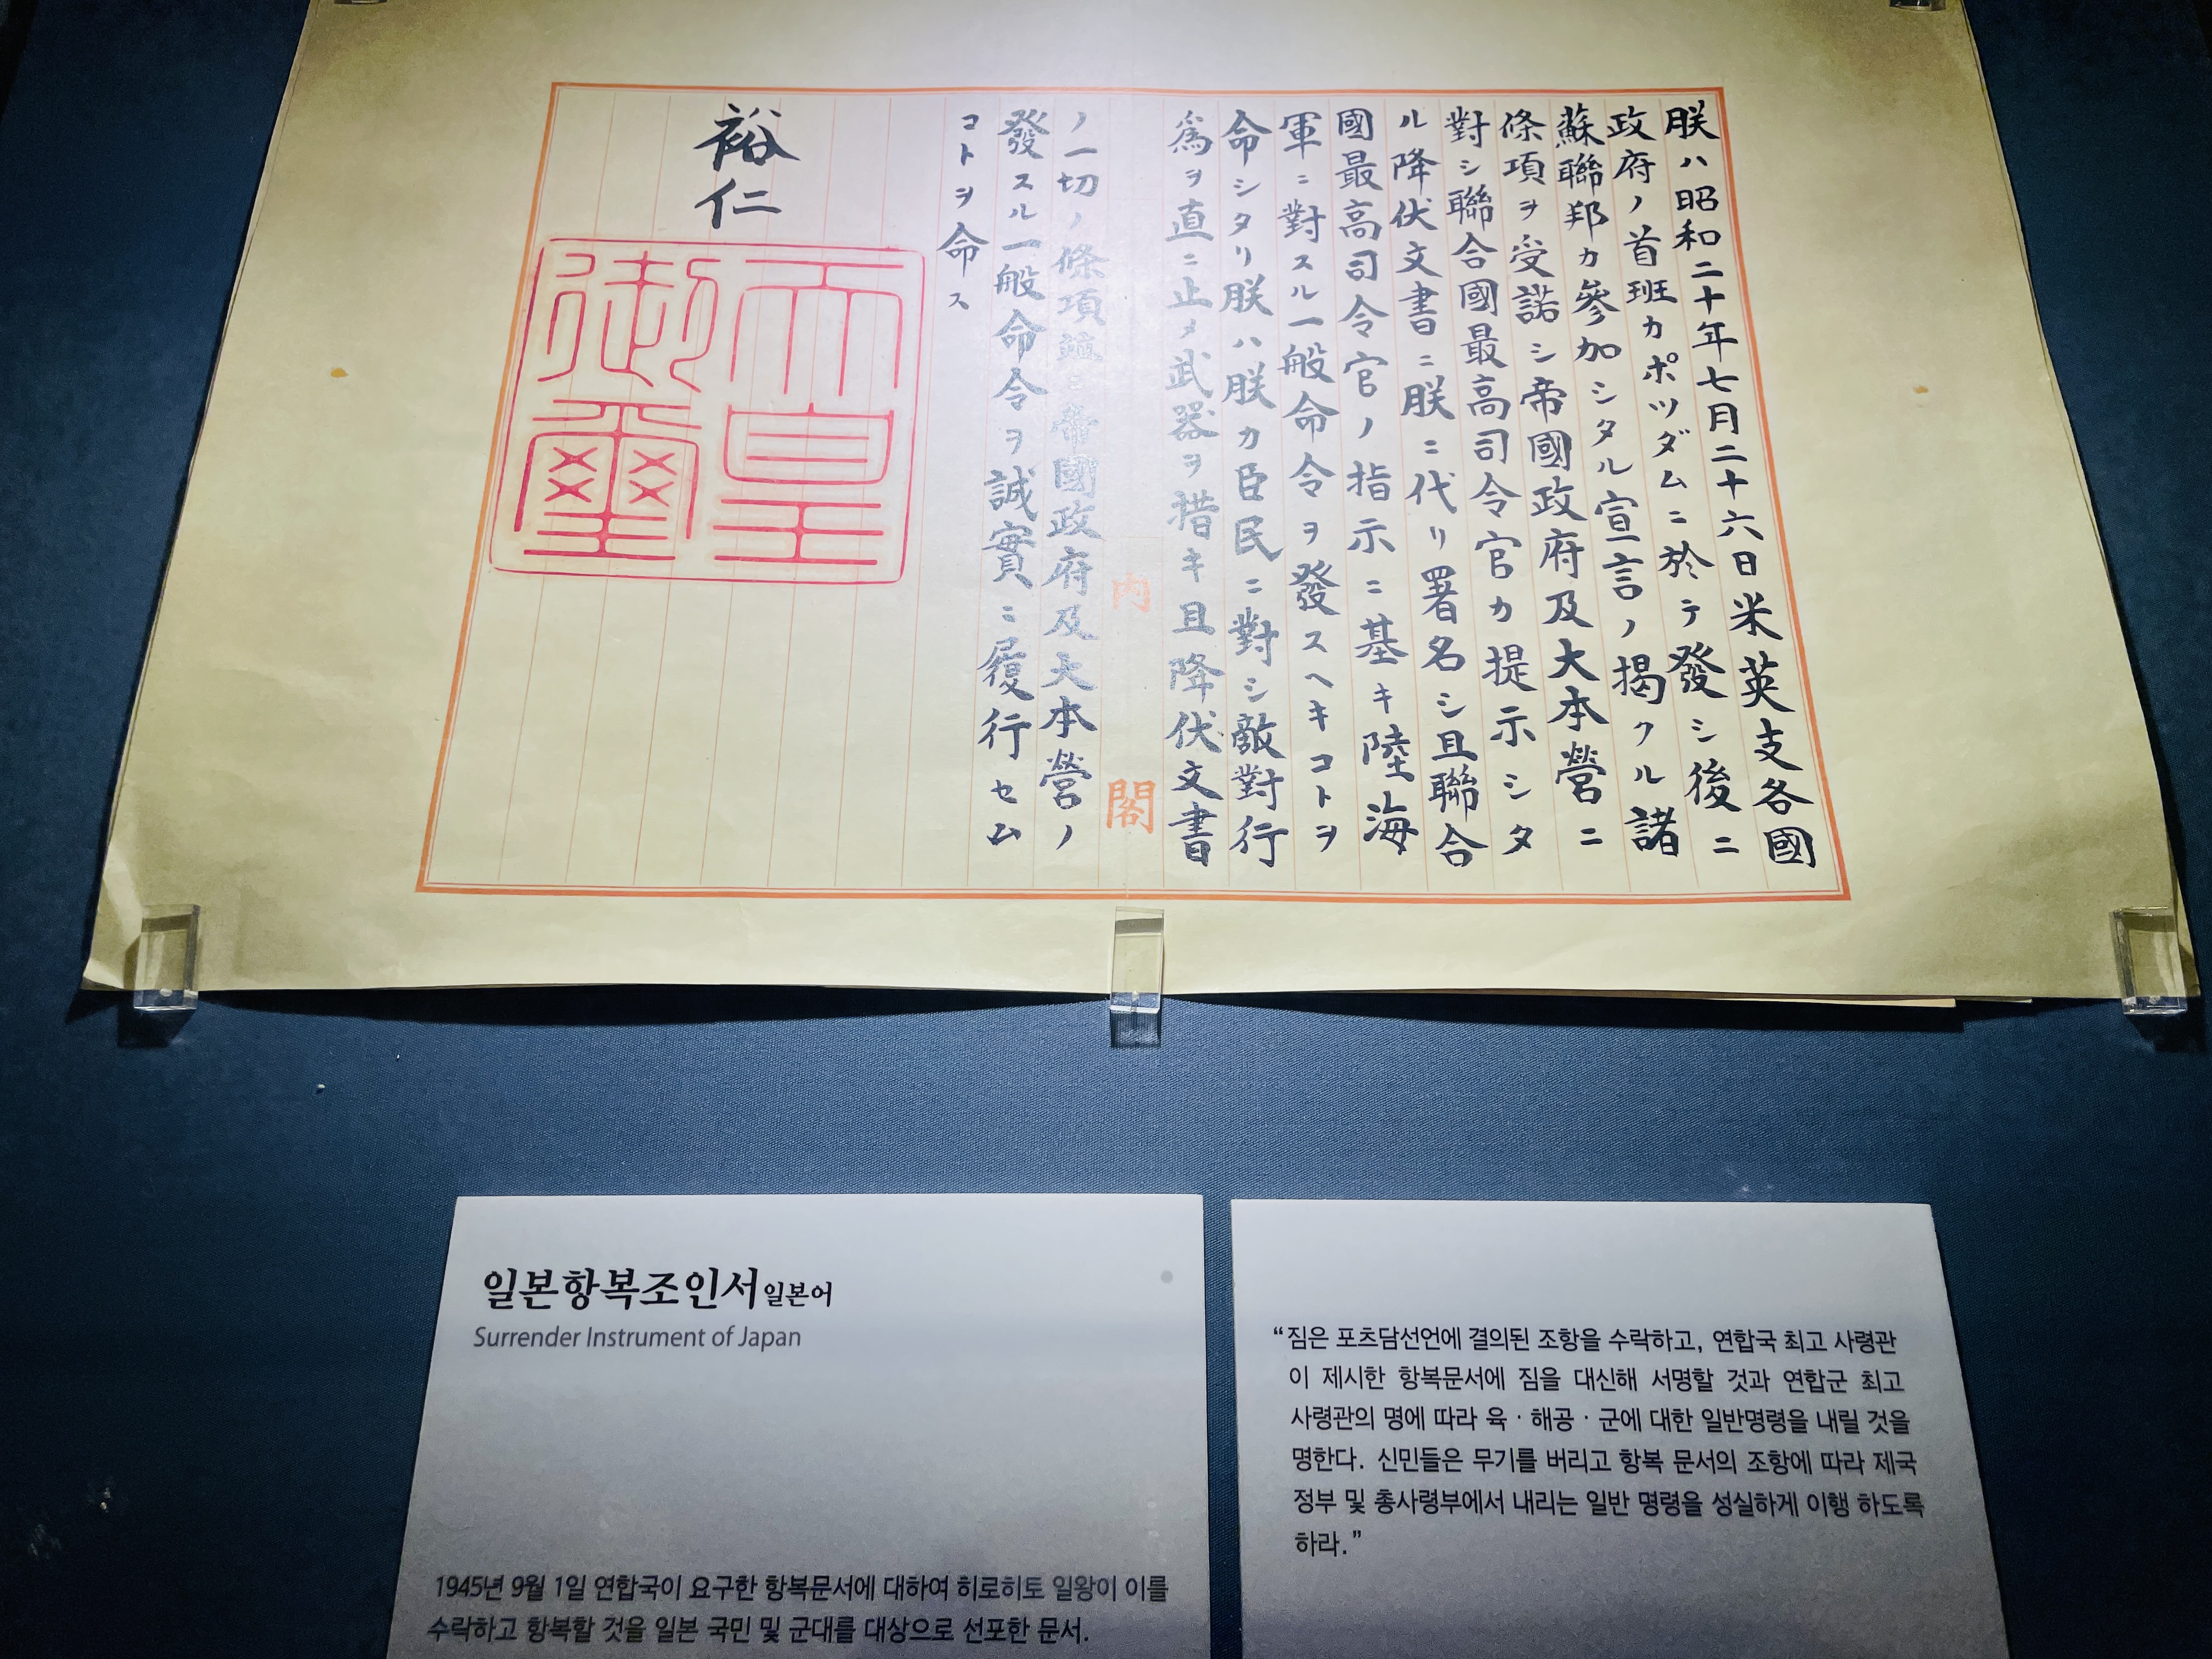 朕ハ昭和二十年七月二十六日米英支各國
政府ノ首班カポツダムニ於テ發シ後ニ
蘇聯邦カ參加シタル宣言ノ掲クル諸
條項ヲ受諾シ帝國政府及大本營ニ
對シ聯合國最高司令官カ提示シタ
ル降伏文書ニ朕ニ代リ署名シ且聯合
國最高司令官ノ指示ニ基キ陸海
軍ニ對スル一般命令ヲ發スヘキコトヲ
命シタリ朕ハ朕カ臣民ニ對シ敵對行
爲ヲ直ニ止メ武器ヲ措キ且降伏文書
内閣
ノ一切ノ條項竝ニ帝國政府及大本營ノ
發スル一般命令ヲ誠實ニ履行セム
コトヲ命ス
裕仁
天皇
御璽
일본항복조인서 일본어
Surrender Instrument of Japan
1945년 9월 1일 연합국이 요구한 항복문서에 대하여 히로히토 일왕이 이를
수락하고 항복할 것을 일본 국민 및 군대를 대상으로 선포한 문서.
“짐은 포츠담선언에 결의된 조항을 수락하고, 연합국 최고 사령관
이 제시한 항복문서에 짐을 대신해 서명할 것과 연합군 최고
사령관의 명에 따라 육 · 해공 · 군에 대한 일반명령을 내릴 것을
명한다. 신민들은 무기를 버리고 항복 문서의 조항에 따라 제국
정부 및 총사령부에서 내리는 일반 명령을 성실하게 이행 하도록
하라.”